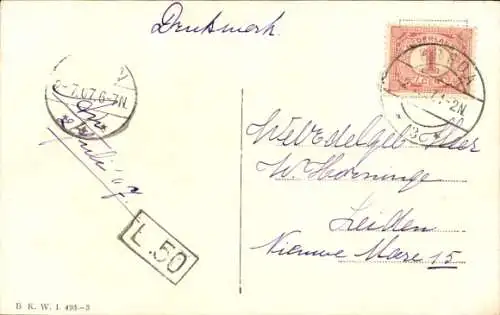 Drukwerk.
NEDERLAND
1
BREDA
1-2N
2-7.07.6-7N.
2 Juli '07.
WelEdelgeb Heer
W. Horninge
Leiden
Nieuwe Mare 15
L.50
B K. W. I. 493-3